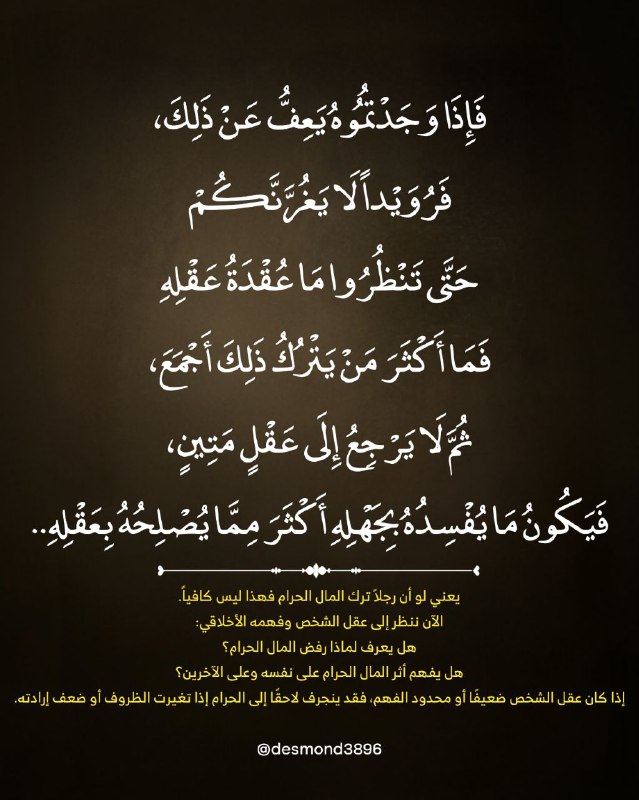 فَإِذَا وَجَدْتُمُوهُ يَعِفُّ عَنْ ذَلِكَ،
فَرُوَيْداً لَا يَغُرَّنَّكُمْ
حَتَّى تَنْظُرُوا مَا عُقْدَةُ عَقْلِهِ
فَمَا أَكْثَرَ مَنْ يَتْرُكُ ذَلِكَ أَجْمَعَ،
ثُمَّ لَا يَرْجِعُ إِلَى عَقْلٍ مَتِينٍ،
فَيَكُونُ مَا يُفْسِدُهُ بِجَهْلِهِ أَكْثَرَ مِمَّا يُصْلِحُهُ بِعَقْلِهِ..
يعني لو أن رجلاً ترك المال الحرام فهذا ليس كافياً.
الآن ننظر إلى عقل الشخص وفهمه الأخلاقي:
هل يعرف لماذا رفض المال الحرام؟
هل يفهم أثر المال الحرام على نفسه وعلى الآخرين؟
إذا كان عقل الشخص ضعيفًا أو محدود الفهم، فقد ينجرف لاحقًا إلى الحرام إذا تغيرت الظروف أو ضعف إرادته.
@desmond3896